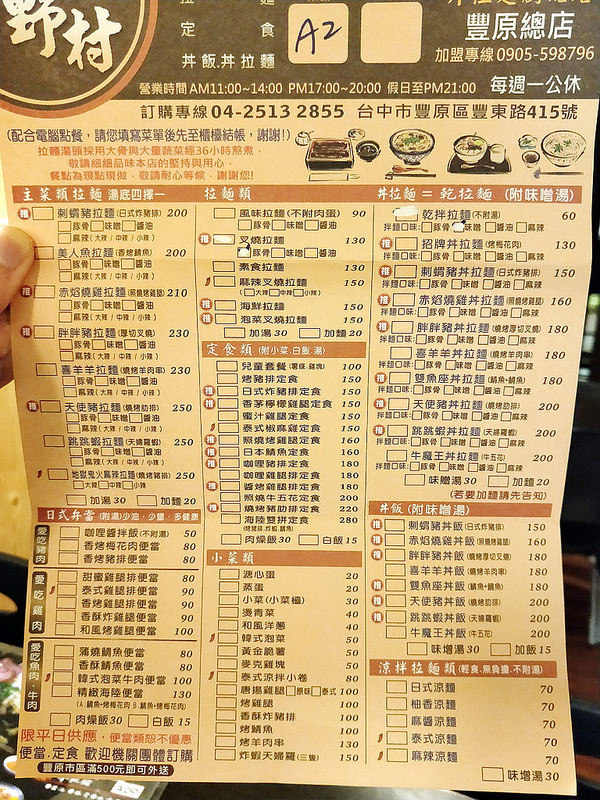 野村
定 食
丼飯.丼拉麵
A2
豐原總店
加盟專線0905-598796
營業時間AM11:00~14:00 PM17:00~20:00 假日至PM21:00 每週一公休
訂購專線04-2513 2855 台中市豐原區豐東路415號
(配合電腦點餐,請您填寫菜單後先至櫃檯結帳,謝謝!)
拉麵湯頭採用大骨與大量蔬菜經36小時熬煮,
敬請細細品味本店的堅持與用心,
餐點為現點現做,敬請耐心等候,謝謝您!
主菜類拉麵 湯底四擇一
推 刺蝟豬拉麵(日式炸豬排) 200
豚骨 味噌 醬油
麻辣(大辣/中辣/小辣)
美人魚拉麵(香烤鯖魚) 200
豚骨 味噌 醬油
麻辣(大辣/中辣/小辣)
推 赤焰燒雞拉麵(照燒烤雞腿) 210
豚骨 味噌 醬油
麻辣(大辣/中辣/小辣)
推 胖胖豬拉麵(厚切叉燒) 230
豚骨 味噌 醬油
麻辣(大辣/中辣/小辣)
喜羊羊拉麵(燒烤羊肉串) 230
豚骨 味噌 醬油
麻辣(大辣/中辣/小辣)
推 天使豬拉麵(燒烤肋排) 250
豚骨 味噌 醬油
麻辣(大辣/中辣/小辣)
跳跳蝦拉麵(天婦羅蝦) 250
豚骨 味噌 醬油
麻辣(大辣/中辣/小辣)
地獄鬼火麻辣拉麵(燒烤豬排) 250
大辣 中辣 小辣
加湯30 加麵20
日式弁當 (附湯)少油.少鹽.多健康
愛吃豬肉
咖哩醬拌飯(附湯) 50
香烤梅花肉便當 80
香烤豬排便當 80
愛吃雞肉
甜蜜雞腿排便當 80
泰式雞腿便當 90
香烤雞腿便當 90
香酥炸雞腿便當 90
和風烤雞腿便當 100
愛吃魚肉.牛肉
蒲燒鯛魚便當 80
香酥鯖魚便當 80
韓式泡菜牛肉便當 100
精緻海陸便當 130
(A.鯖魚+烤梅花肉 B.鯖魚+烤梅花肉)
肉燥飯30 白飯15
限平日供應,便當類恕不優惠
便當.定食 歡迎機關團體訂購
豐原市區滿500元即可外送
拉麵類
風味拉麵(不附肉蛋) 90
豚骨 味噌 醬油
推 叉燒拉麵 130
豚骨 味噌 醬油
素食拉麵 130
麻辣叉燒拉麵 150
(大辣 中辣 小辣)
海鮮拉麵 150
推 泡菜叉燒拉麵 150
加湯30 加麵20
定食類 (附小菜.白飯.湯)
兒童套餐(薯條.雞塊) 100
烤豬排定食 150
推 日式炸豬排定食 150
推 香茅檸檬雞腿定食 150
蜜汁雞腿定食 150
泰式椒麻雞定食 150
推 照燒烤雞腿定食 160
推 日本鯖魚定食 160
推 咖哩豬排定食 180
咖哩雞腿定食 180
推 醬烤雞腿定食 180
照燒牛五花定食 200
推 燒烤豬肋排定食 220
海陸雙拼定食 280
肉燥飯30 白飯15
小菜類
溏心蛋 20
蒸蛋 20
小菜(小菜檯) 30
燙青菜 40
和風洋蔥 40
韓式泡菜 50
黃金脆薯 50
麥克雞塊 50
泰式涼拌小卷 80
唐揚雞腿 原味 泰式 100
烤雞腿 100
香酥炸豬排 100
烤鯖魚 100
烤羊肉串 130
炸蝦天婦羅(三隻) 150
丼拉麵=乾拉麵 (附味噌湯)
乾拌拉麵(不附湯) 60
拌麵口味: 豚骨 味噌 醬油 麻辣
推 招牌丼拉麵(烤梅花肉) 130
拌麵口味: 豚骨 味噌 醬油 麻辣
推 刺蝟豬丼拉麵(日式炸豬排) 150
拌麵口味: 豚骨 味噌 醬油 麻辣
推 赤焰燒雞丼拉麵(照燒烤雞腿) 160
拌麵口味: 豚骨 味噌 醬油 麻辣
推 胖胖豬丼拉麵(燒烤厚切叉燒) 180
拌麵口味: 豚骨 味噌 醬油 麻辣
喜羊羊丼拉麵(燒烤羊肉串) 180
拌麵口味: 豚骨 味噌 醬油 麻辣
推 雙魚座丼拉麵(鯖魚+鯛魚) 180
拌麵口味: 豚骨 味噌 醬油 麻辣
推 天使豬丼拉麵(燒烤肋排) 200
拌麵口味: 豚骨 味噌 醬油 麻辣
推 跳跳蝦丼拉麵(天婦羅蝦) 200
拌麵口味: 豚骨 味噌 醬油 麻辣
牛魔王丼拉麵(牛五花) 200
拌麵口味: 豚骨 味噌 醬油 麻辣
味噌湯30 加麵20
(若要加麵請先告知)
丼飯 (附味噌湯)
推 刺蝟豬丼飯(日式炸豬排) 150
推 赤焰燒雞丼飯(照燒烤雞腿) 160
推 胖胖豬丼飯(燒烤厚切叉燒) 180
喜羊羊丼飯(燒烤羊肉串) 180
推 雙魚座丼飯(鯖魚+鯛魚) 180
推 天使豬丼飯(燒烤肋排) 200
推 跳跳蝦丼飯(天婦羅蝦) 200
牛魔王丼飯(牛五花) 200
味噌湯30 加飯15
涼拌拉麵類(輕食.無負擔.不附湯)
日式涼麵 70
柚香涼麵 70
麻醬涼麵 70
泰式涼麵 70
麻辣涼麵 70
味噌湯30